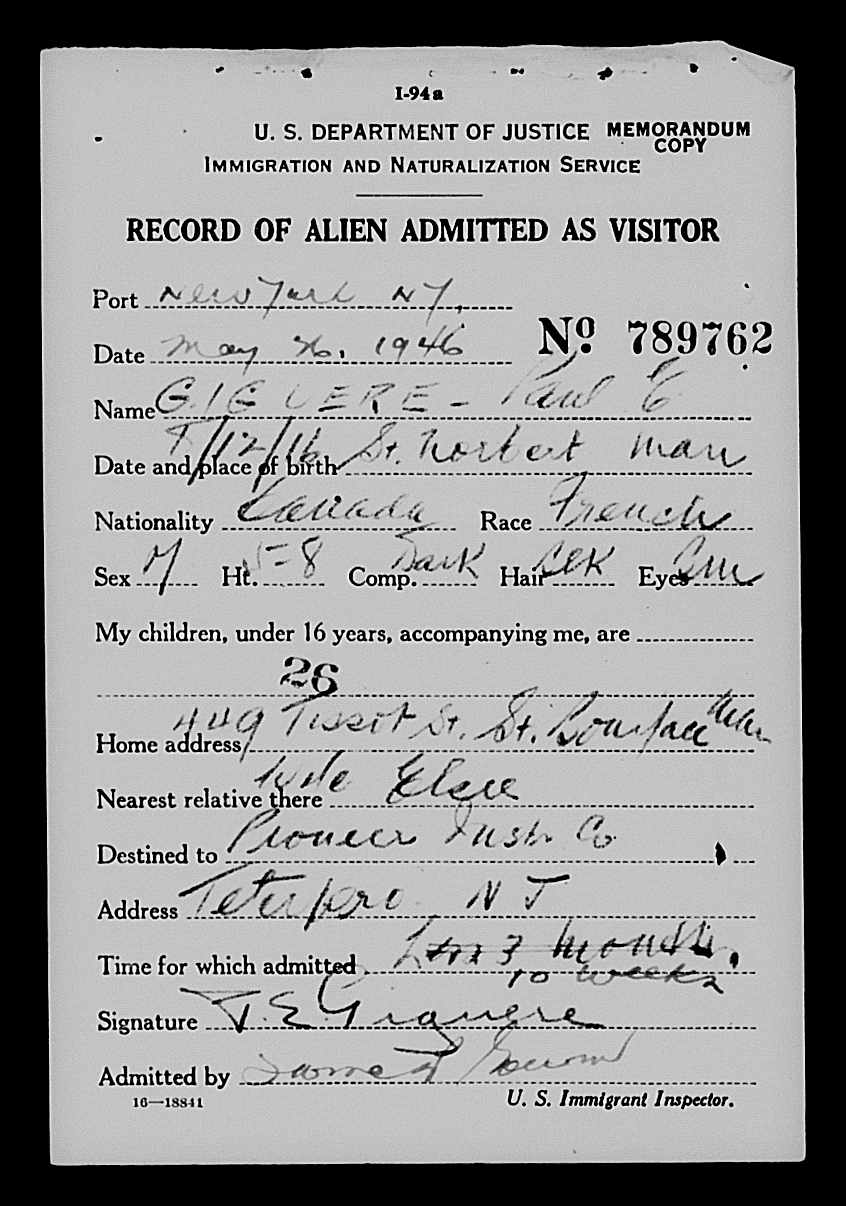 I-94a
U. S. DEPARTMENT OF JUSTICE MEMORANDUM COPY
IMMIGRATION AND NATURALIZATION SERVICE
RECORD OF ALIEN ADMITTED AS VISITOR
Port New York NY.
Date May 26, 1946 Nº 789762
Name GIGUERE - Paul E
Date and place of birth /12/16 St. Norbert Man
Nationality Canada Race French
Sex M Ht. 5-8 Comp. Dark Hair Blk Eyes Brn
My children, under 16 years, accompanying me, are
26
Home address 449 Tissot St. St. Boniface Man
Nearest relative there Wife Elsie
Destined to Pioneer Instr Co
Address Teterboro N J
Time for which admitted 3 months.
10 weeks
Signature P. E. Giguere
Admitted by James
16—18841 U. S. Immigrant Inspector.